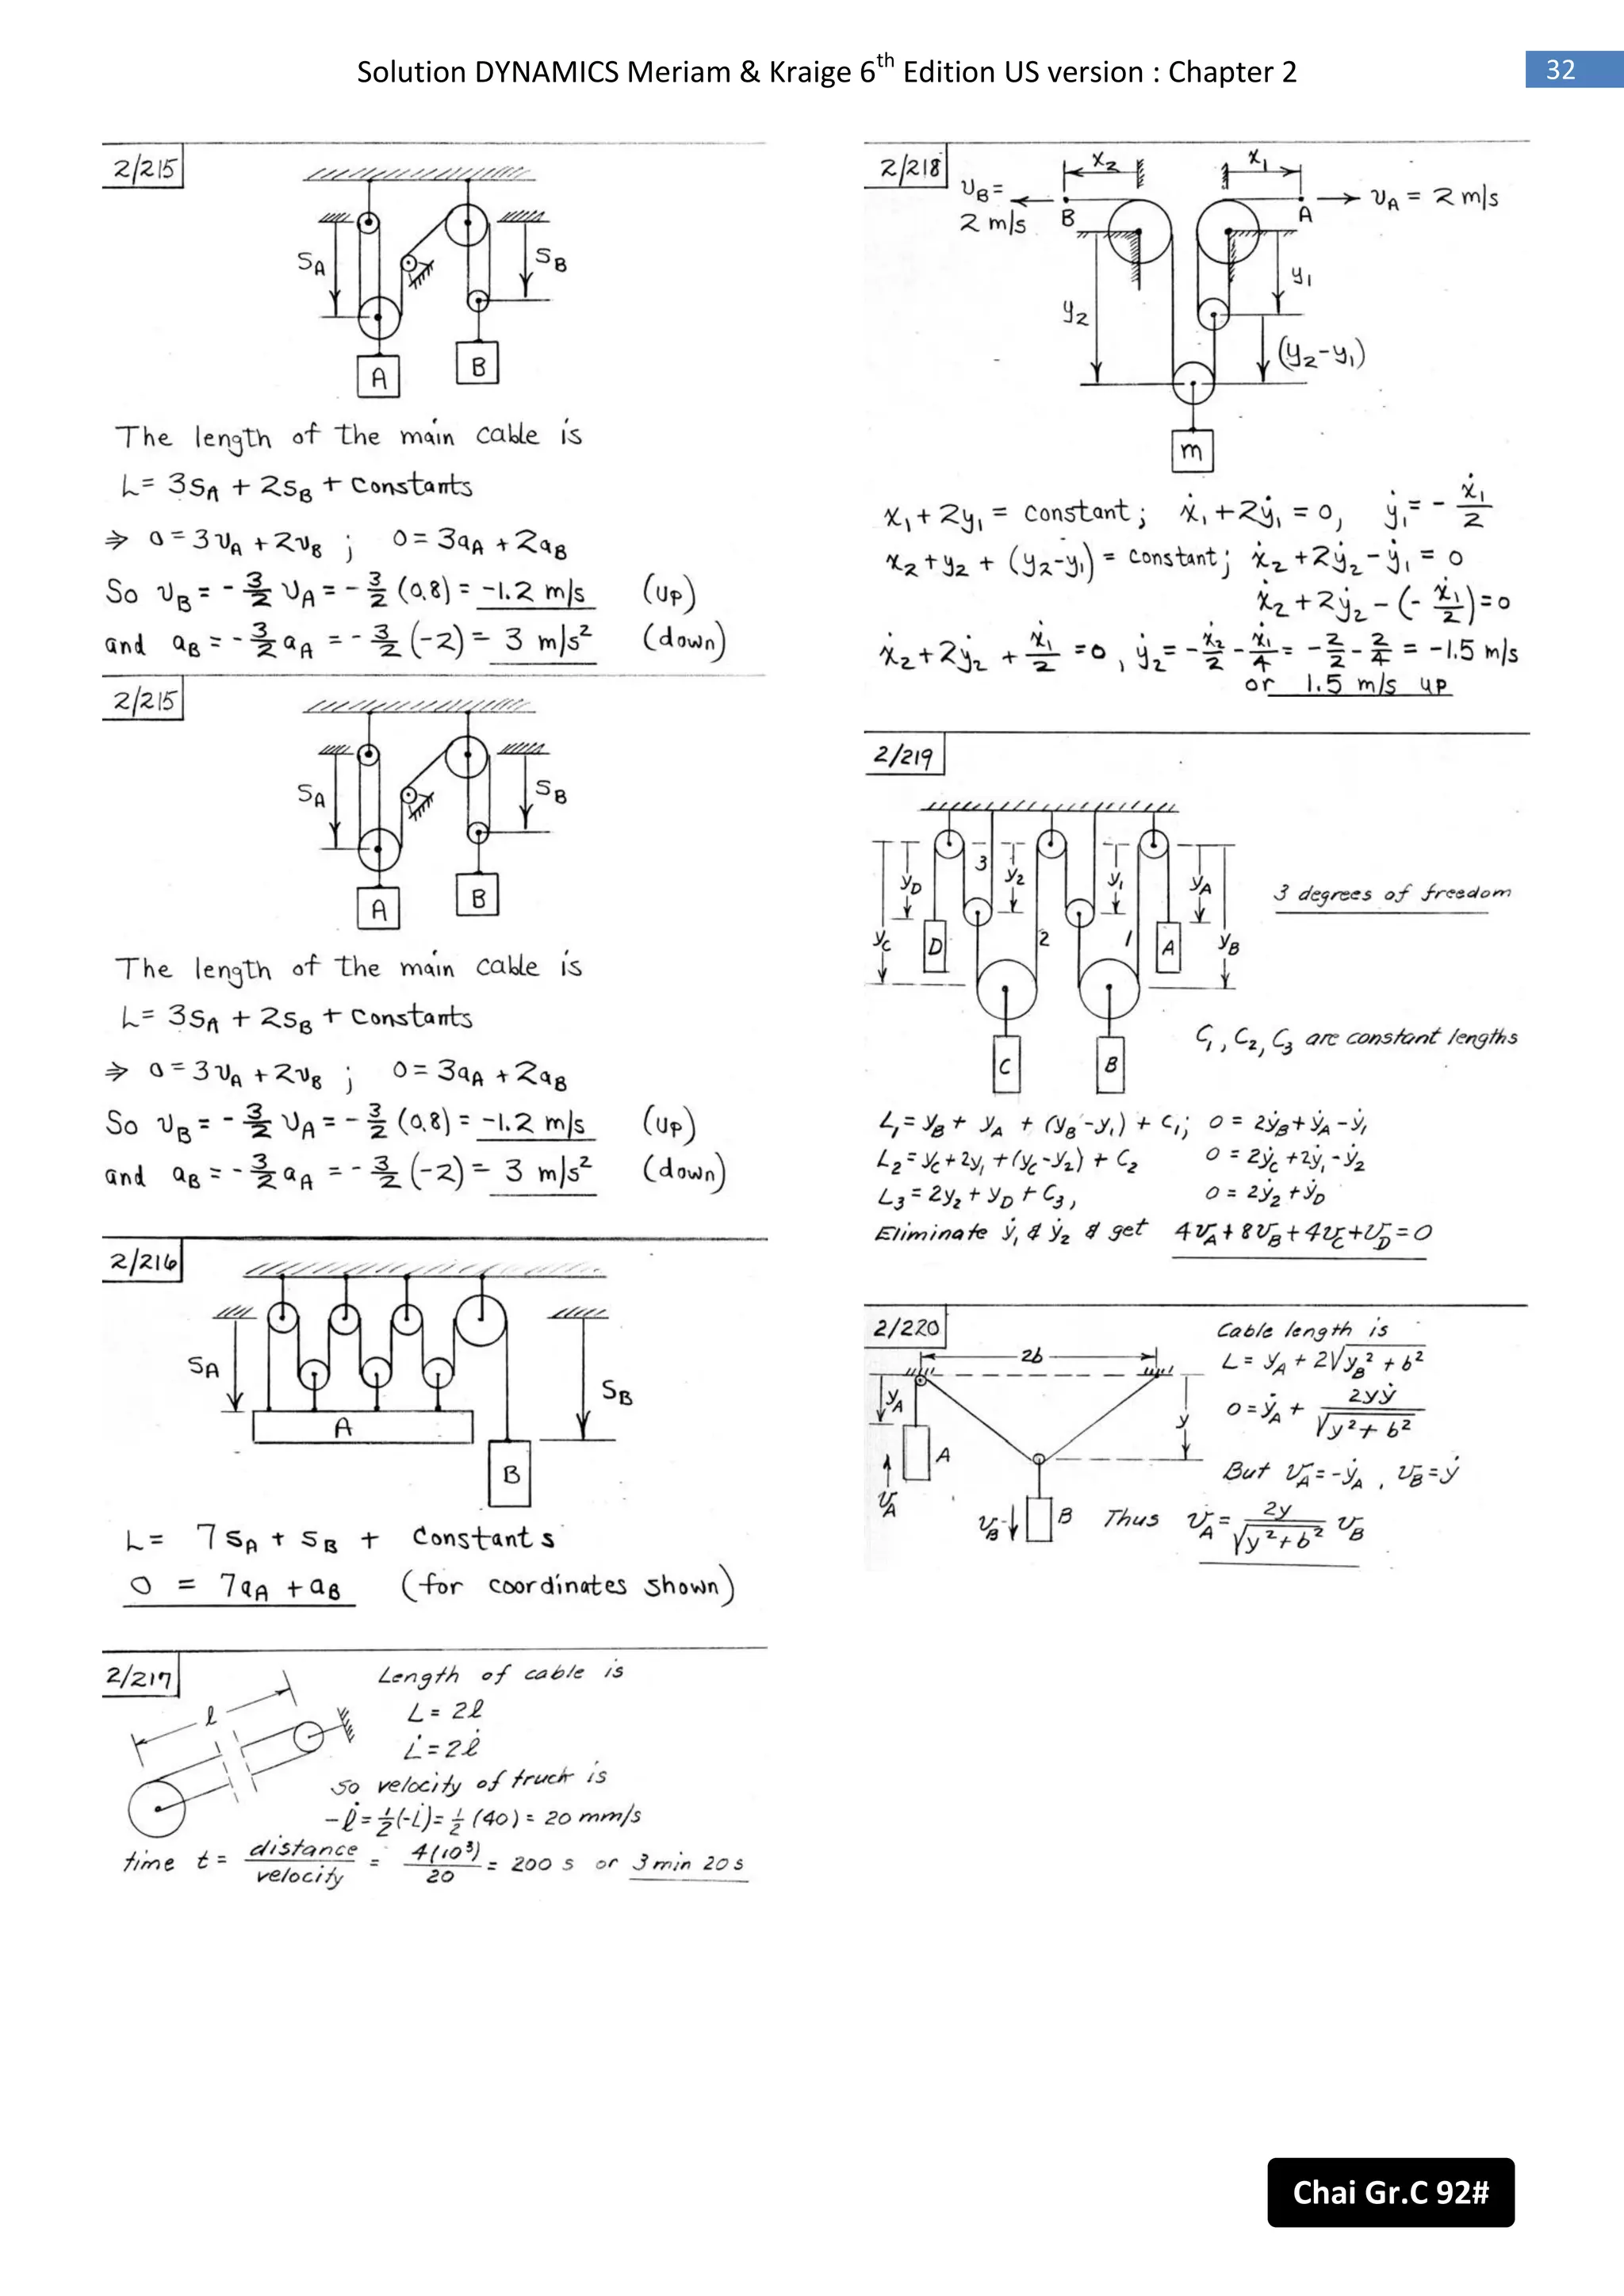 Solution DYNAMICS Meriam & Kraige 6th Edition US version : Chapter 2
32
2/215
SA
SB
A
B
The length of the main cable is
L = 3SA + 2SB + constants
⇒ 0 = 3vA + 2vB ; 0 = 3aA + 2aB
So vB = - 3/2 vA = - 3/2 (0.8) = -1.2 m/s (up)
and aB = - 3/2 aA = - 3/2 (-2) = 3 m/s² (down)
2/215
SA
SB
A
B
The length of the main cable is
L = 3SA + 2SB + constants
⇒ 0 = 3vA + 2vB ; 0 = 3aA + 2aB
So vB = - 3/2 vA = - 3/2 (0.8) = -1.2 m/s (up)
and aB = - 3/2 aA = - 3/2 (-2) = 3 m/s² (down)
2/216
SA
SB
A
B
L = 7SA + SB + constants
0 = 7aA + aB (for coordinates shown)
2/217
l
Length of cable is
L = 2l
L̇ = 2l̇
so velocity of truck is
-l̇ = ½(-L̇) = ½ (40) = 20 mm/s
time t = distance/velocity = 4(10³)/20 = 200 s or 3 min 20 s
2/218
x2
x1
vB = 2 m/s
B
A
vA = 2 m/s
y1
y2
(y2-y1)
m
x1 + 2y1 = constant ; ẋ1 + 2ẏ1 = 0, ẏ1 = - ẋ1/2
x2 + y2 + (y2-y1) = constant ; ẋ2 + 2ẏ2 - ẏ1 = 0
ẋ2 + 2ẏ2 - (- ẋ1/2) = 0
ẋ2 + 2ẏ2 + ẋ1/2 = 0 , ẏ2 = - ẋ2/2 - ẋ1/4 = - 2/2 - 2/4 = -1.5 m/s
or 1.5 m/s up
2/219
3
yD
y2
y1
yA
3 degrees of freedom
yC
D
2
1
A
yB
C1, C2, C3 are constant lengths
C
B
L1 = yB + yA + (yB - y1) + C1; 0 = 2ẏB + ẏA - ẏ1
L2 = yC + 2y1 + (yC - y2) + C2 0 = 2ẏC + 2ẏ1 - ẏ2
L3 = 2y2 + yD + C3, 0 = 2ẏ2 + ẏD
Eliminate ẏ1 & ẏ2 & get 4vA + 8vB + 4vC + vD = 0
2/220
2b
Cable length is
L = yA + 2√(yB² + b²)
yA
0 = ẏA + 2yẏ/√(y² + b²)
y
A
But vA = -ẏA , vB = ẏ
vA
vB
B
Thus vA = 2y/√(y² + b²) vB
Chai Gr.C 92#